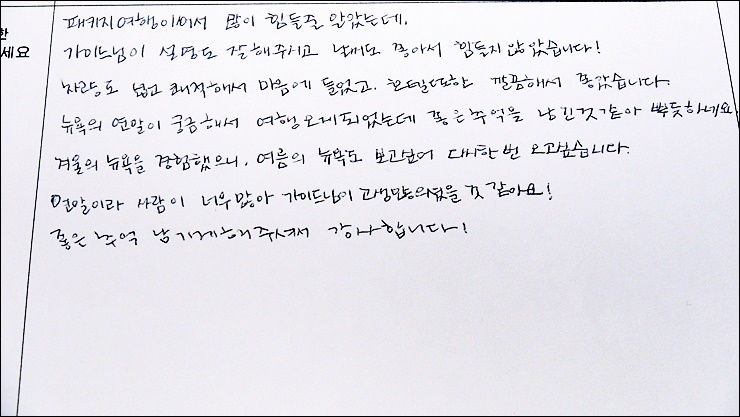 한
세요
패키지여행이어서 많이 힘들줄 알았는데,
가이드님이 설명도 잘해주시고 날씨도 좋아서 힘들지 않았습니다!
차량도 넓고 쾌적해서 마음에 들었고, 호텔또한 깔끔해서 좋았습니다.
뉴욕의 연말이 궁금해서 여행오게되었는데 좋은 추억을 남긴것같아 뿌듯하네요
겨울의 뉴욕을 경험했으니, 여름의 뉴욕도 보고싶어 다시한번 오고싶습니다.
연말이라 사람이 너무많아 가이드님이 고생많으셨을 것 같아요!
좋은 추억 남기게해주셔서 감사합니다!